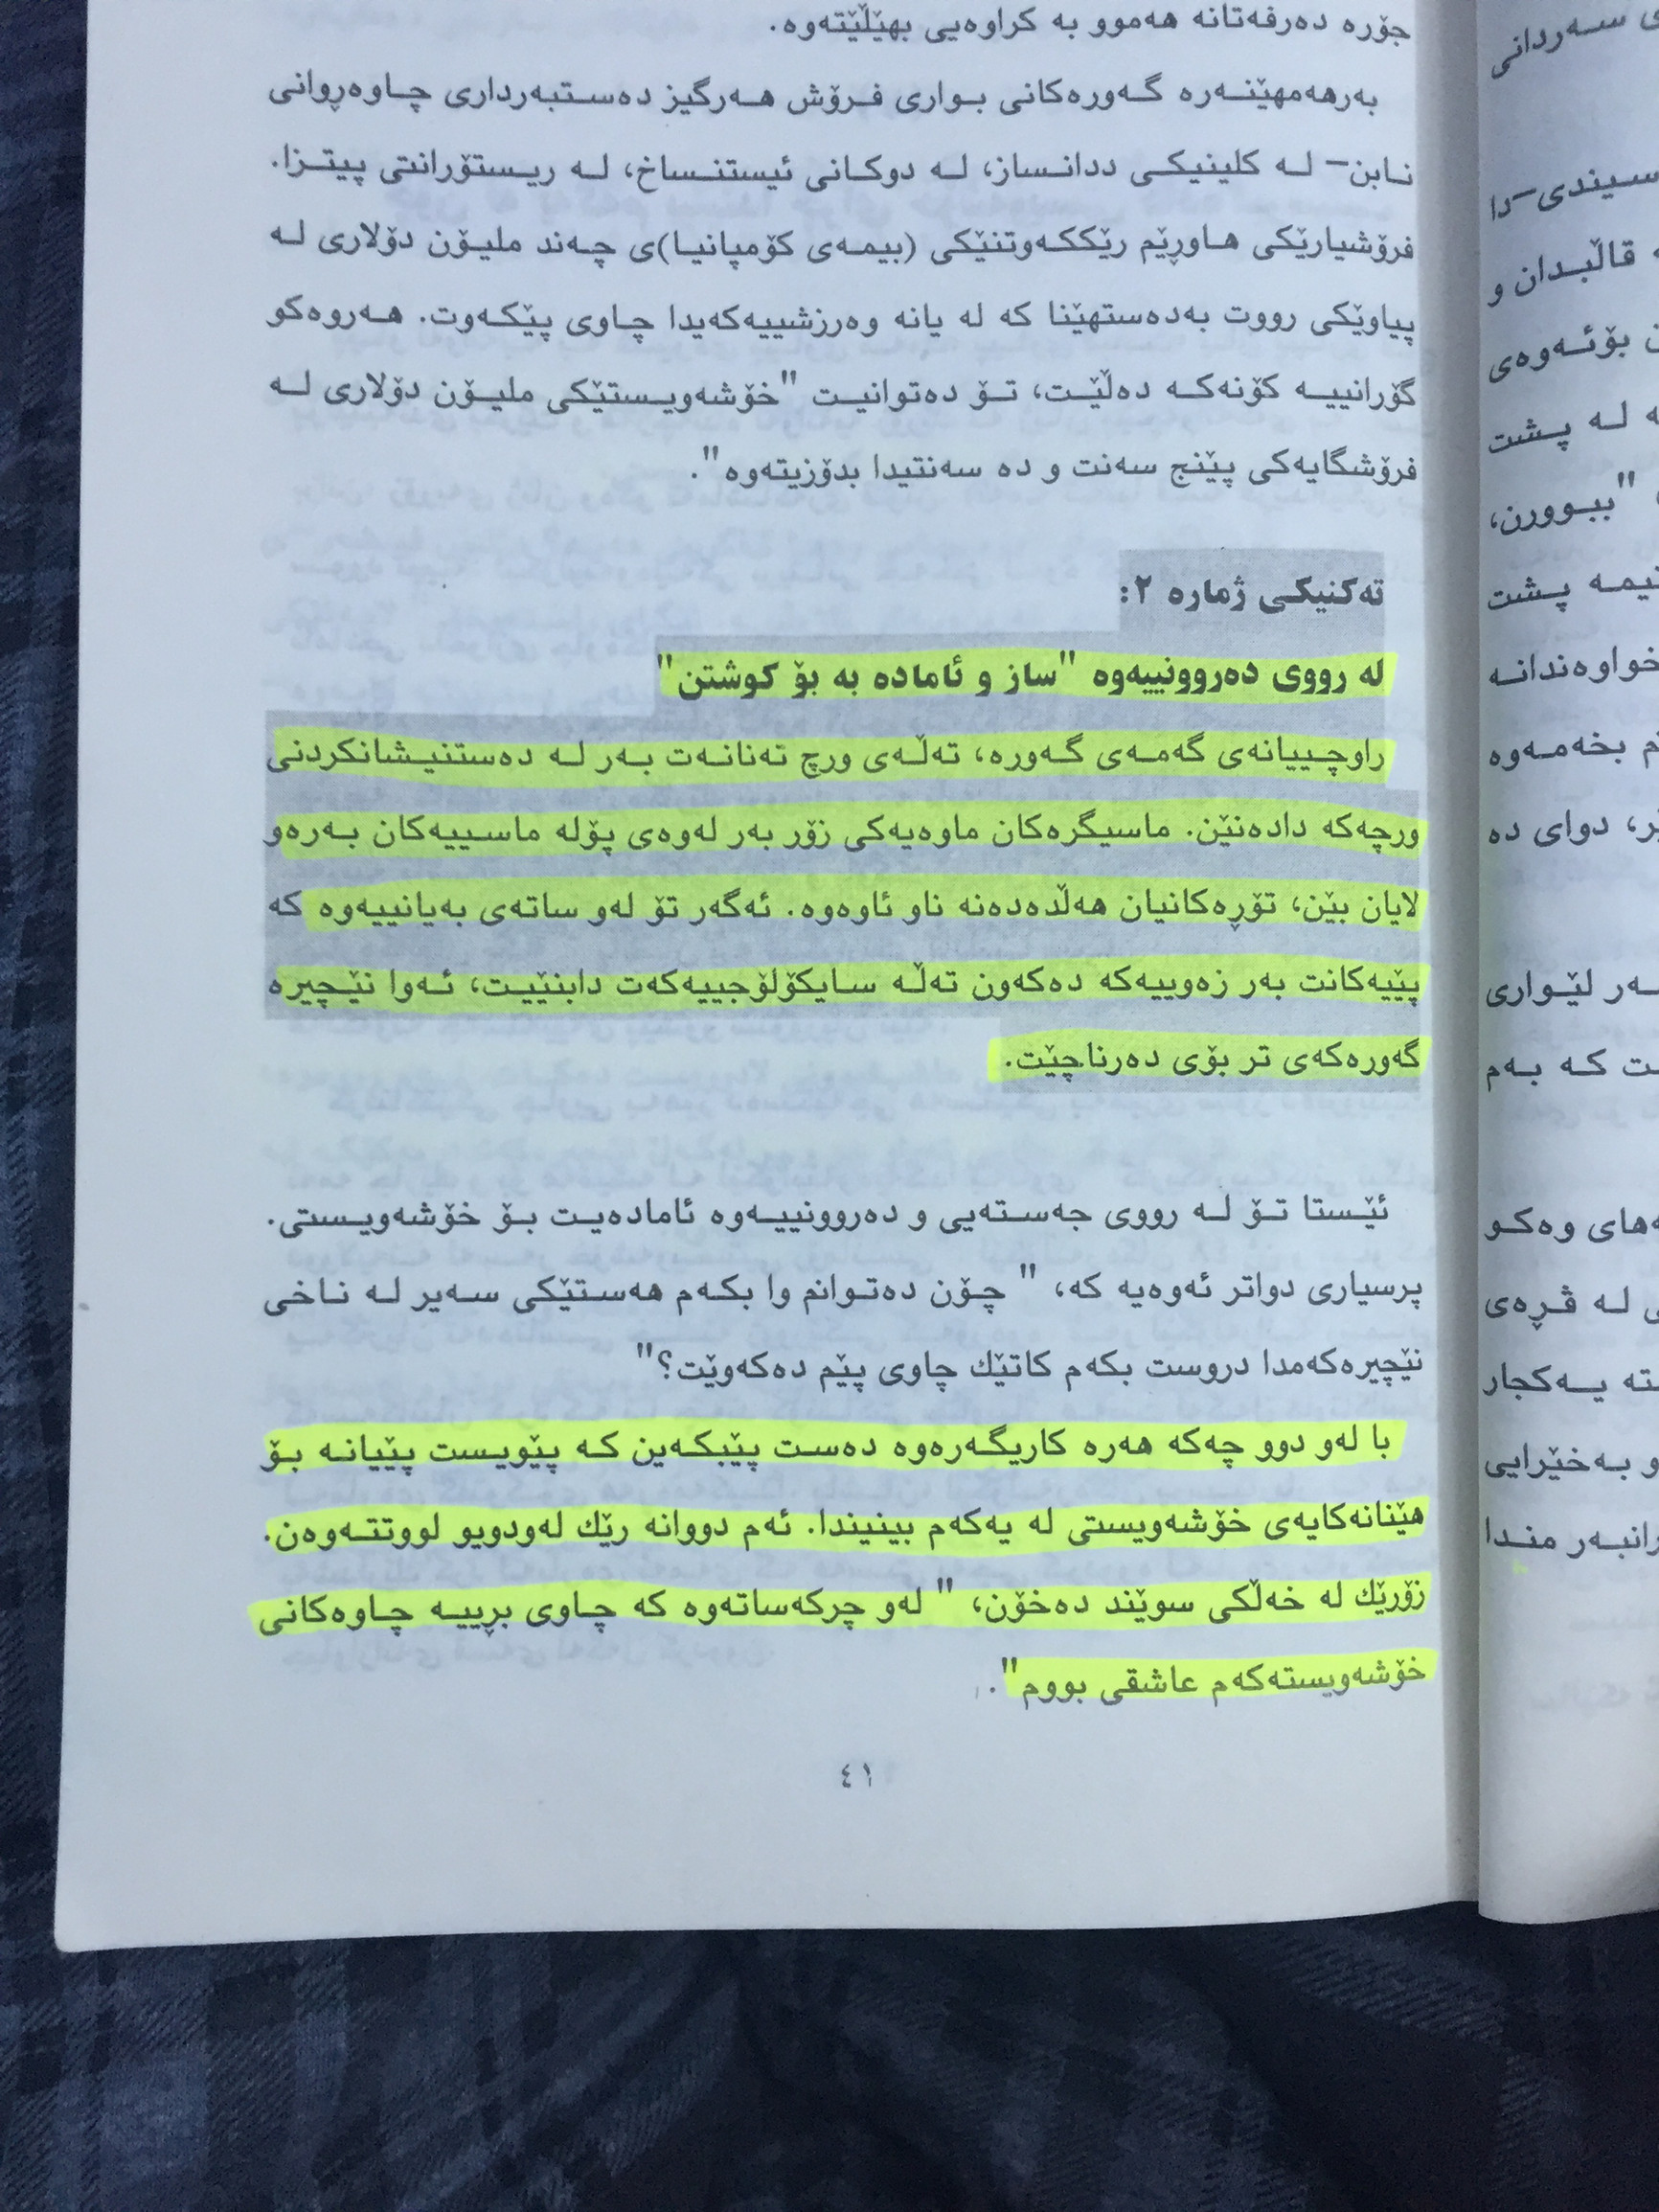 جۆرە دەرفەتانە هەموو بە کراوەیی بهێڵێتەوە.
بەرهەمهێنەرە گەورەکانی بواری فرۆش هەرگیز دەستبەرداری چاوەڕوانی
نابن– لە کلینیکی ددانساز، لە دوکانی ئیستنساخ، لە ریستۆرانتی پیتزا.
فرۆشیارێکی هاوڕێم رێککەوتنێکی (بیمەی کۆمپانیا)ی چەند ملیۆن دۆلاری لە
پیاوێکی رووت بەدەستهێنا کە لە یانە وەرزشییەکەیدا چاوی پێکەوت. هەروەکو
گۆرانییە کۆنەکە دەڵێت، تۆ دەتوانیت "خۆشەویستێکی ملیۆن دۆلاری لە
فرۆشگایەکی پێنج سەنت و دە سەنتیدا بدۆزیتەوە".
تەکنیکی ژمارە ٢:
لە رووی دەروونییەوە "ساز و ئامادە بە بۆ کوشتن"
راوچییانەی گەمەی گەورە، تەڵەی ورچ تەنانەت بەر لە دەستنیشانکردنی
ورچەکە دادەنێن. ماسیگرەکان ماوەیەکی زۆر بەر لەوەی پۆلە ماسییەکان بەرەو
لایان بێن، تۆڕەکانیان هەڵدەدەنە ناو ئاوەوە. ئەگەر تۆ لەو ساتەی بەیانییەوە کە
پێیەکانت بەر زەوییەکە دەکەون تەڵە سایکۆلۆجییەکەت دابنێیت، ئەوا نێچیرە
گەورەکەی تر بۆی دەرناچێت.
ئێستا تۆ لە رووی جەستەیی و دەروونییەوە ئامادەیت بۆ خۆشەویستی.
پرسیاری دواتر ئەوەیە کە، " چۆن دەتوانم وا بکەم هەستێکی سەیر لە ناخی
نێچیرەکەمدا دروست بکەم کاتێك چاوی پێم دەکەوێت؟"
با لەو دوو چەکە هەرە کاریگەرەوە دەست پێبکەین کە پێویست پێیانە بۆ
هێنانەکایەی خۆشەویستی لە یەکەم بینیندا. ئەم دووانە رێك لەودویو لووتتەوەن.
زۆرێك لە خەڵکی سوێند دەخۆن، " لەو چرکەساتەوە کە چاوی بڕییە چاوەکانی
خۆشەویستەکەم عاشقی بووم".
٤١
ی سەردانی
سیندی–دا
ە قاڵبدان و
ن بۆئەوەی
ە لە پشت
"ببوورن،
نیمە پشت
خواوەندانە
م بخەمەوە
ر، دوای دە
ەر لێواری
ت کە بەم
ەهای وەکو
ی لە ڤڕەی
تە یەکجار
و بەخێرایی
رانبەر مندا